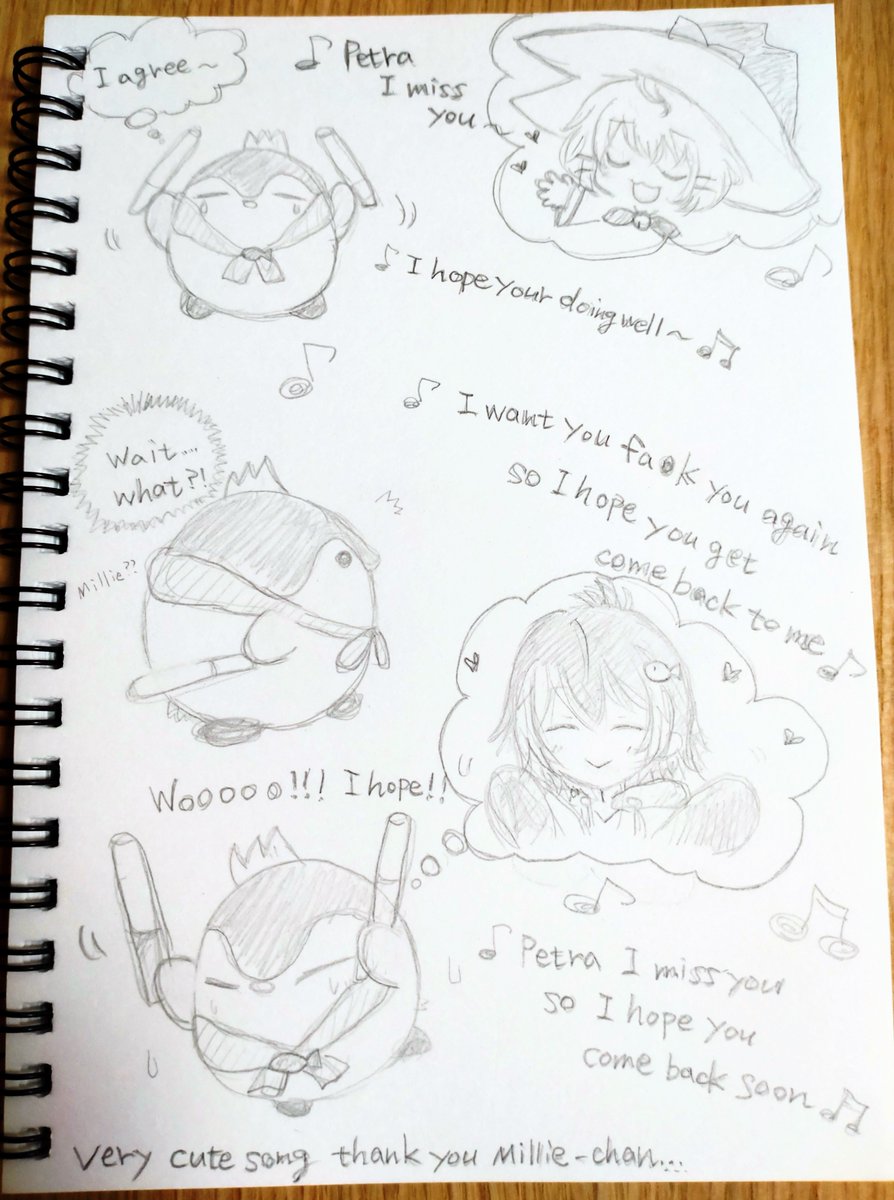 I agree~
♪ Petra
I miss
you~
♪ I hope your doing well~ ♫
Wait....
what?!
Millie??
♪ I want you fa●k you again
so I hope you get
come back to me ♪
Wooooo!!! I hope!!
♪ Petra I miss you
so I hope you
come back soon ♫
Very cute song thank you Millie-chan...